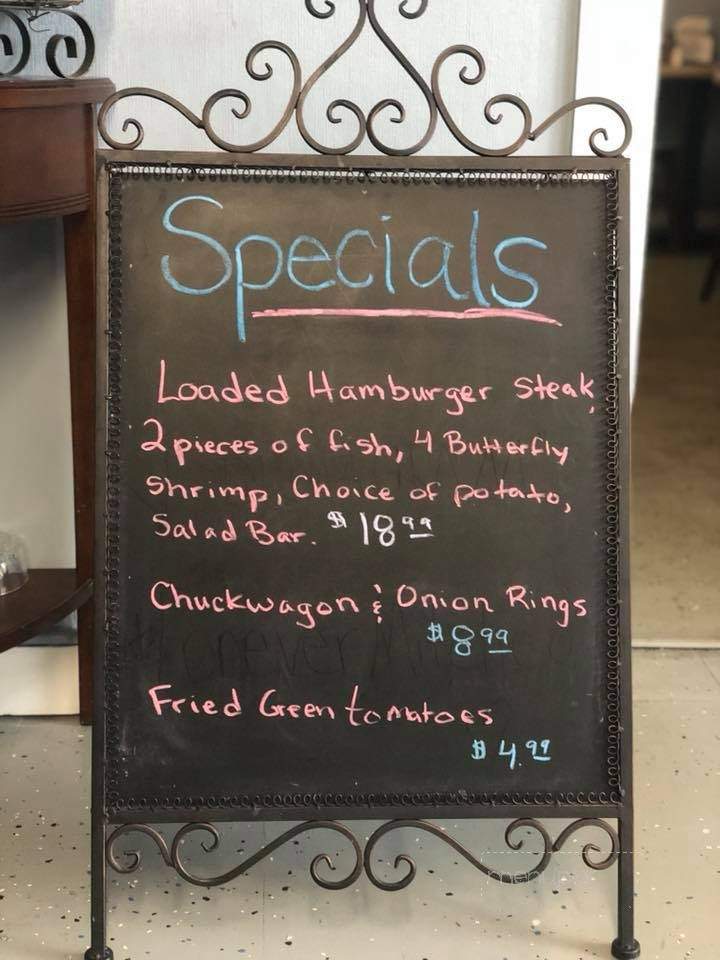 Specials
Loaded Hamburger Steak,
2 pieces of fish, 4 Butterfly
Shrimp, Choice of potato,
Salad Bar. $18.99
Chuckwagon & Onion Rings
$8.99
Fried Green tomatoes
$4.99